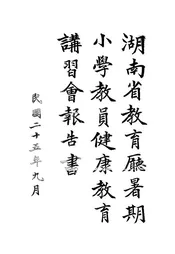 湖南省教育廳暑期
小學教員健康教育
講習會報告書
民國二十五年九月